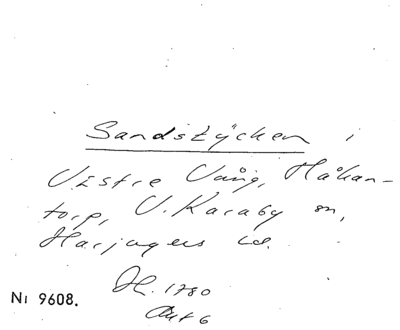 Sandstycken i
Västre Vång, Håkan-
torp, V. Karaby sn,
Harjagers hd.
H. 1780
Akt 6
Nr 9608.